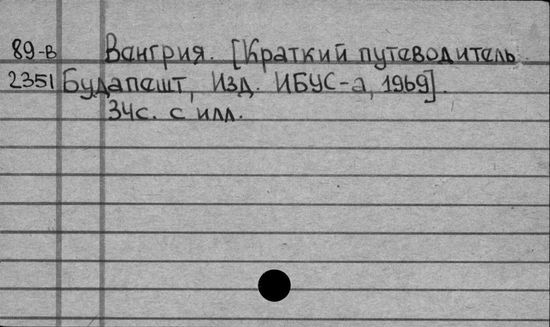 89-В Венгрия. [Краткий путеводитель.
2351 Будапешт, Изд. ИБУС-а, 1969].
34с. с илл.